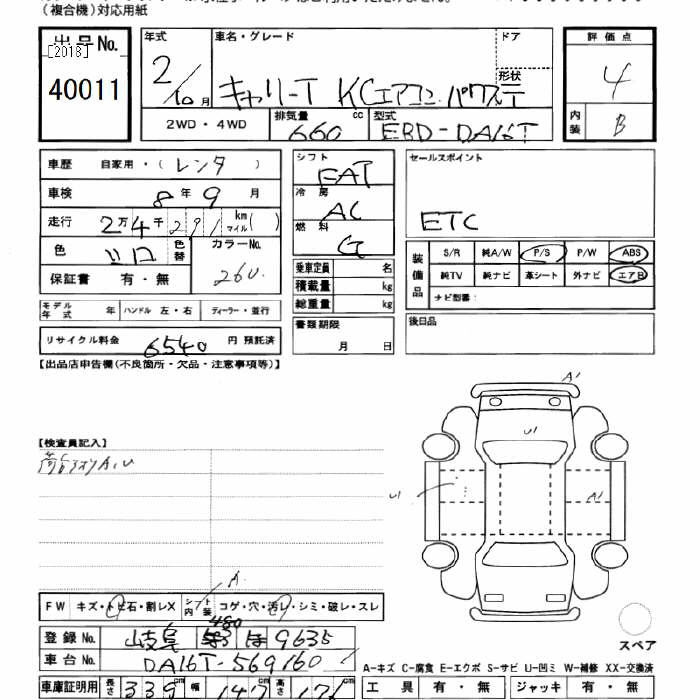 (複合機)対応用紙
出品No.
[2018]
40011
年式 車名・グレード ドア 評価点
2/10月 キャリーT KCエアコン.パワステ 形状 4
2WD・4WD 排気量 660 cc 型式 EBD-DA16T 内装 B
車歴 自家用・(レンタ)
車検 8年9月
走行 2万4千291 km マイル( )
色 シロ 色替 カラーNo. 26U.
保証書 有・無
シフト FAT
冷房 AC
燃料 G
乗車定員 名
積載量 kg
総重量 kg
セールスポイント
ETC
装備品 S/R 純A/W P/S P/W ABS
純TV 純ナビ 革シート 外ナビ エアB
ナビ型番:
モデル年式 年 ハンドル 左・右 ディーラー・並行
書類期限 月 日
後日品
リサイクル料金 6540 円 預託済
【出品店申告欄(不良箇所・欠品・注意事項等)】
A1
U1
【検査員記入】
U1 A1
A.
FW キズ・トビ石・割レX シフト内装 コゲ・穴・汚レ・シミ・破レ・スレ
登録No. 岐阜 480 ほ 9635
車台No. DA16T-569160
スペア
A-キズ C-腐食 E-エクボ S-サビ U-凹ミ W-補修 XX-交換済
車庫証明用 長さ 339 cm 幅 147 cm 高さ 171 cm
工具 有・無 ジャッキ 有・無